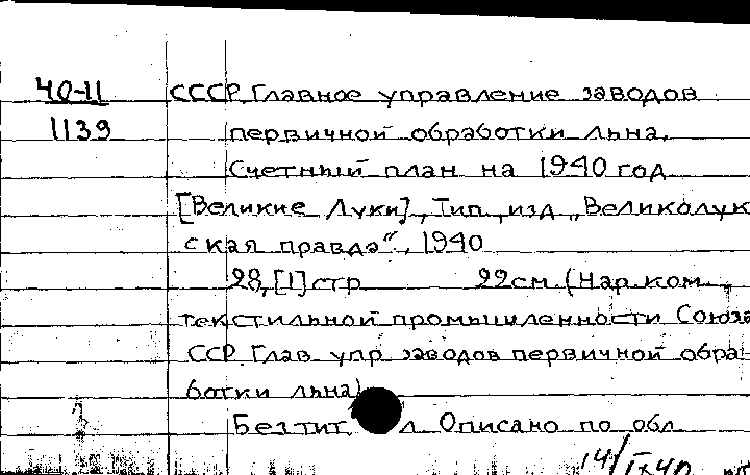 40-11
1139
СССР. Главное управление заводов
первичной обработки льна.
Счетный план на 1940 год
[Великие Луки], Тип. изд. „Великолук
ская правда", 1940
28, [1] стр 22см. (Нар. ком.
текстильной промышленности Союза
ССР. Глав. упр. заводов первичной обра
ботки льна)
Без тит. л. Описано по обл.
14/IX 40